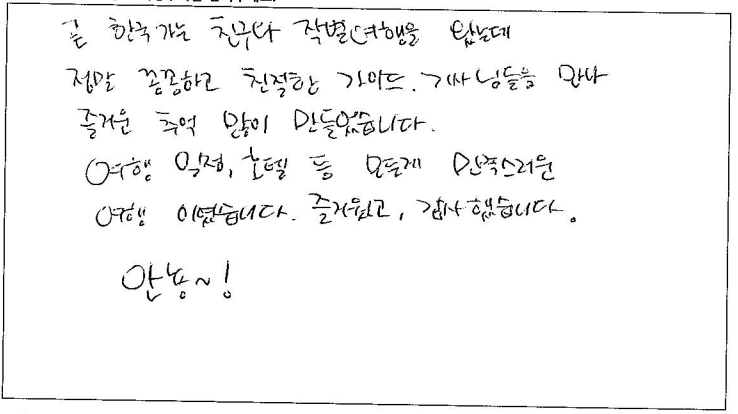 곧 한국 가는 친구와 작별여행을 왔는데
정말 꼼꼼하고 친절한 가이드. 기사님들을 만나
즐거운 추억 많이 만들었습니다.
여행 일정, 호텔 등 모든게 만족스러운
여행 이였습니다. 즐거웠고, 감사했습니다.
안뇽~!